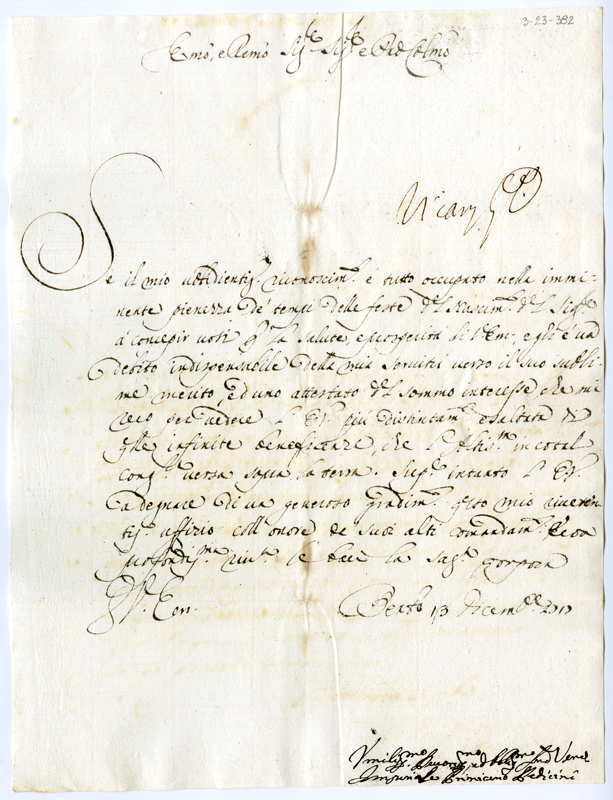 3-23-382
Emo, e Remo Sig.re Sig.re e Prõn Colmo
Se il mio riconoscim.to è tutto occupato nella immi-
nente pienezza de' tempi delle feste del Nascim.to del Sig.re
a concepir voti p la salute, e prosperità di V. Em. egli è un
debito indispensabile della mia servitù verso il suo subli-
me merito, ed uno attestato del sommo interesse che mi
reco per vedere l'E.V. più distintam.te esaltata da
q.lle infinite beneficenze, che l' in cotal
cong.ra versa sopra la terra. Sup.co intanto l'E.V.
a degnare di un generoso gradim.to q.sto mio riveren-
tis.o uffizio coll'onore de suoi alti comandam.ti, e con
profondis.ma riv.za le bacio la sag.ra porpora
Di V. Em.
13 Dicembre
Umilis.mo